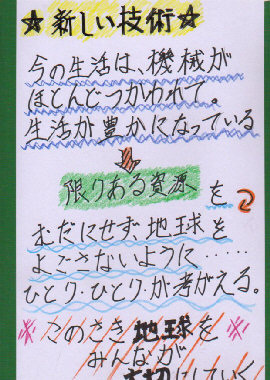 ☆新しい技術☆
今の生活は、機械が
ほとんどつかわれて。
生活が豊かになっている
限りある資源を
むだにせず、地球を
よごさないように・・・・・
ひとり・ひとり・が考がえる。
このさき地球を
みんなが
大切にしていく